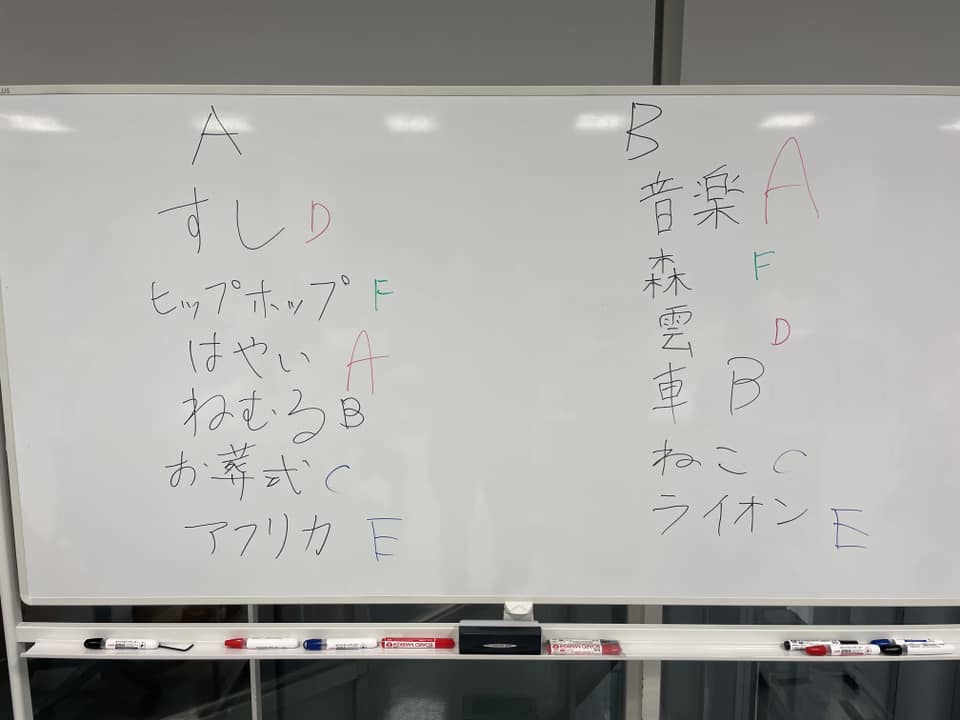 A
すし D
ヒップホップ F
はやい A
ねむる B
お葬式 C
アフリカ E
B
音楽 A
森 F
雲 D
車 B
ねこ C
ライオン E